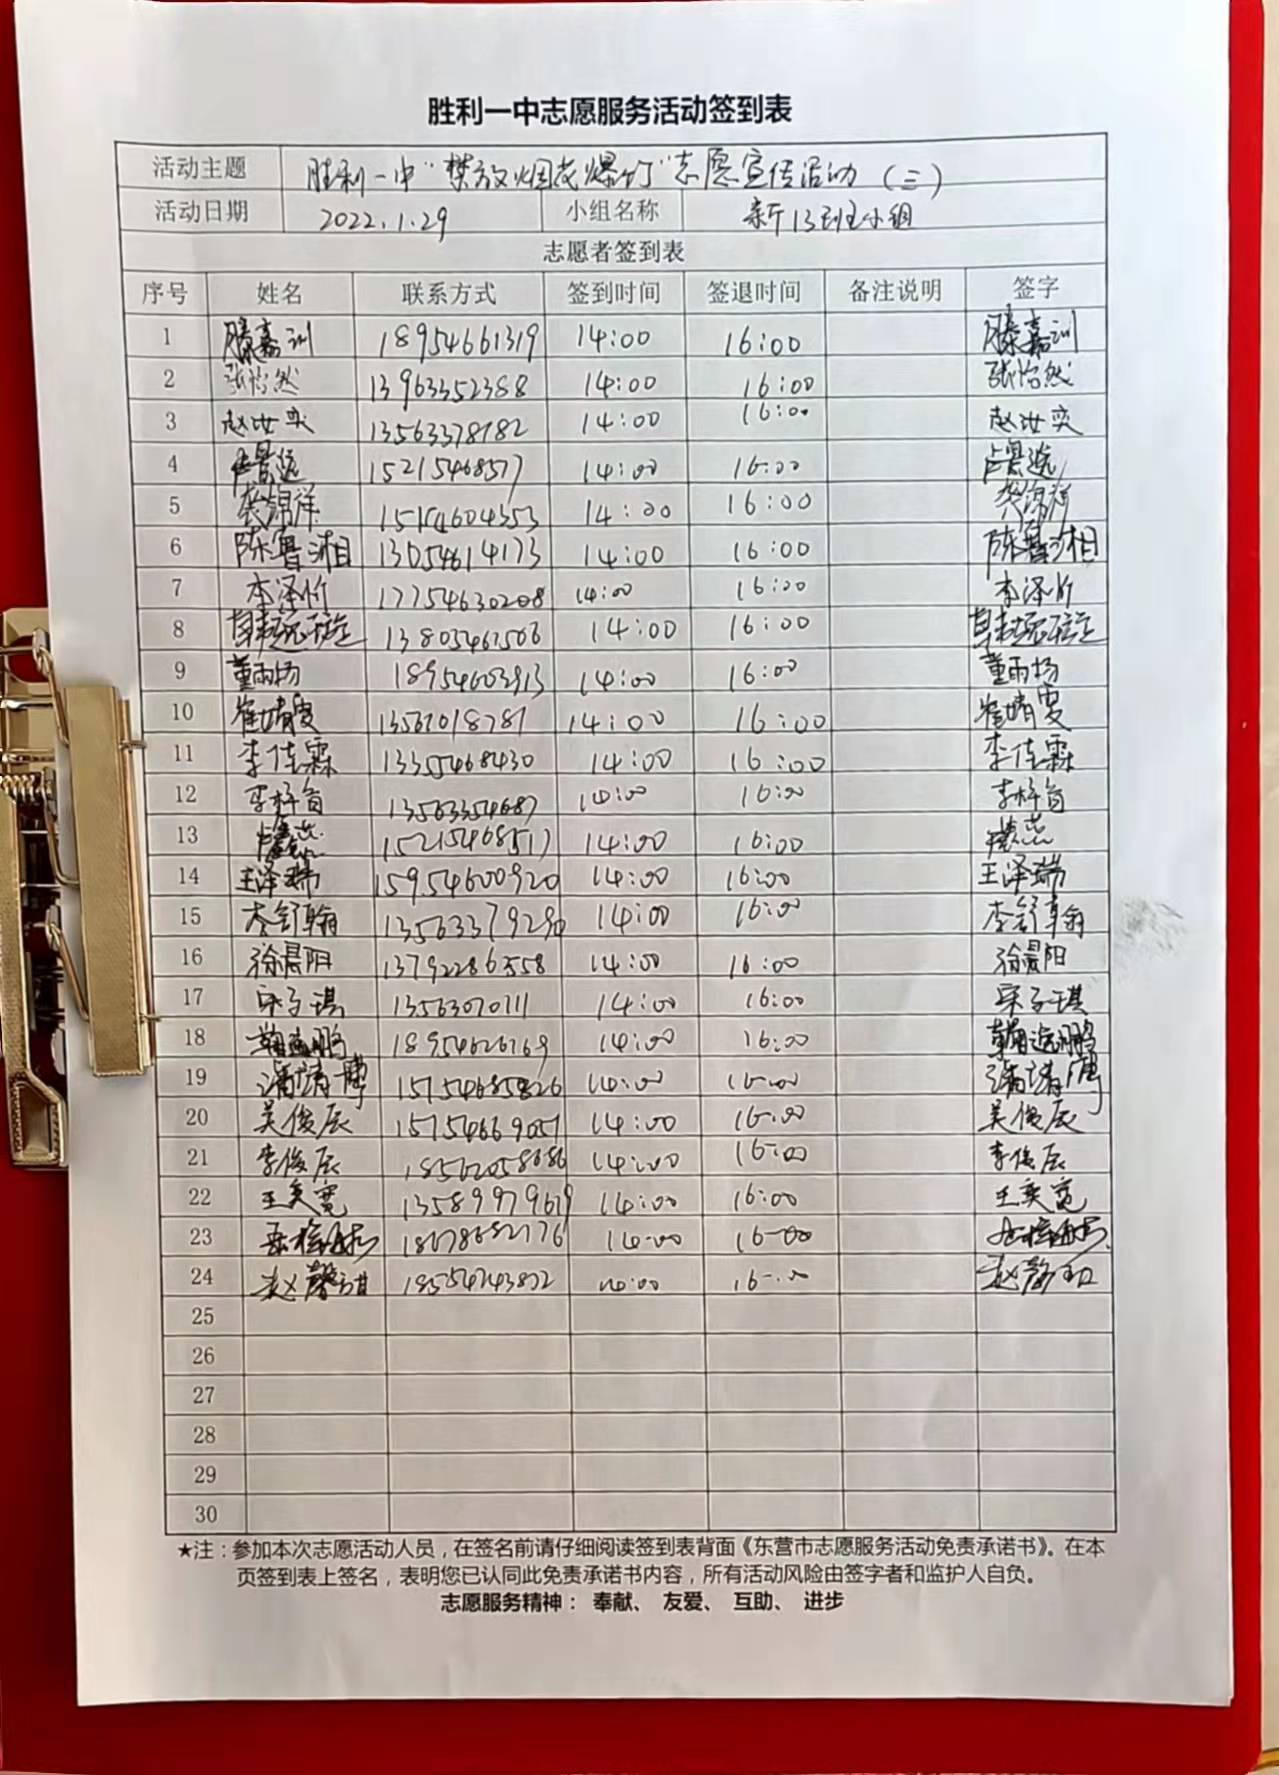 胜利一中志愿服务活动签到表
活动主题 胜利一中“禁放烟花爆竹”志愿宣传活动（三）
活动日期 2022.1.29 小组名称 新13班小组
志愿者签到表
序号 姓名 联系方式 签到时间 签退时间 备注说明 签字
1 滕嘉训 18954661319 14:00 16:00 滕嘉训
2 张怡然 13963352388 14:00 16:00 张怡然
3 赵汝奕 13563378782 14:00 16:00 赵汝奕
4 卢景远 15215468577 14:00 16:00 卢景远
5 14:00 16:00
6 陈鲁湘 13054614173 14:00 16:00 陈鲁湘
7 李泽价 17754630208 14:00 16:00 李泽价
8 14:00 16:00
9 董雨扬 18954603913 14:00 16:00 董雨扬
10 崔婧雯 14:00 16:00 崔婧雯
11 李佳霖 13355468430 14:00 16:00 李佳霖
12 13563354687 14:00 16:00
13 14:00 16:00
14 王泽瑞 15954600920 14:00 16:00 王泽瑞
15 李舒翰 14:00 16:00 李舒翰
16 徐晨阳 13792286558 14:00 16:00 徐晨阳
17 宋子琪 14:00 16:00 宋子琪
18 18954626769 14:00 16:00
19 潘靖博 15154685826 14:00 16:00 潘靖博
20 吴俊辰 14:00 16:00 吴俊辰
21 李俊辰 14:00 16:00 李俊辰
22 王奕宽 13589979619 14:00 16:00 王奕宽
23 14:00 16:00
24 14:00 16:00
25
26
27
28
29
30
★注：参加本次志愿活动人员，在签名前请仔细阅读签到表背面《东营市志愿服务活动免责承诺书》。在本
页签到表上签名，表明您已认同此免责承诺书内容，所有活动风险由签字者和监护人自负。
志愿服务精神： 奉献、 友爱、 互助、 进步